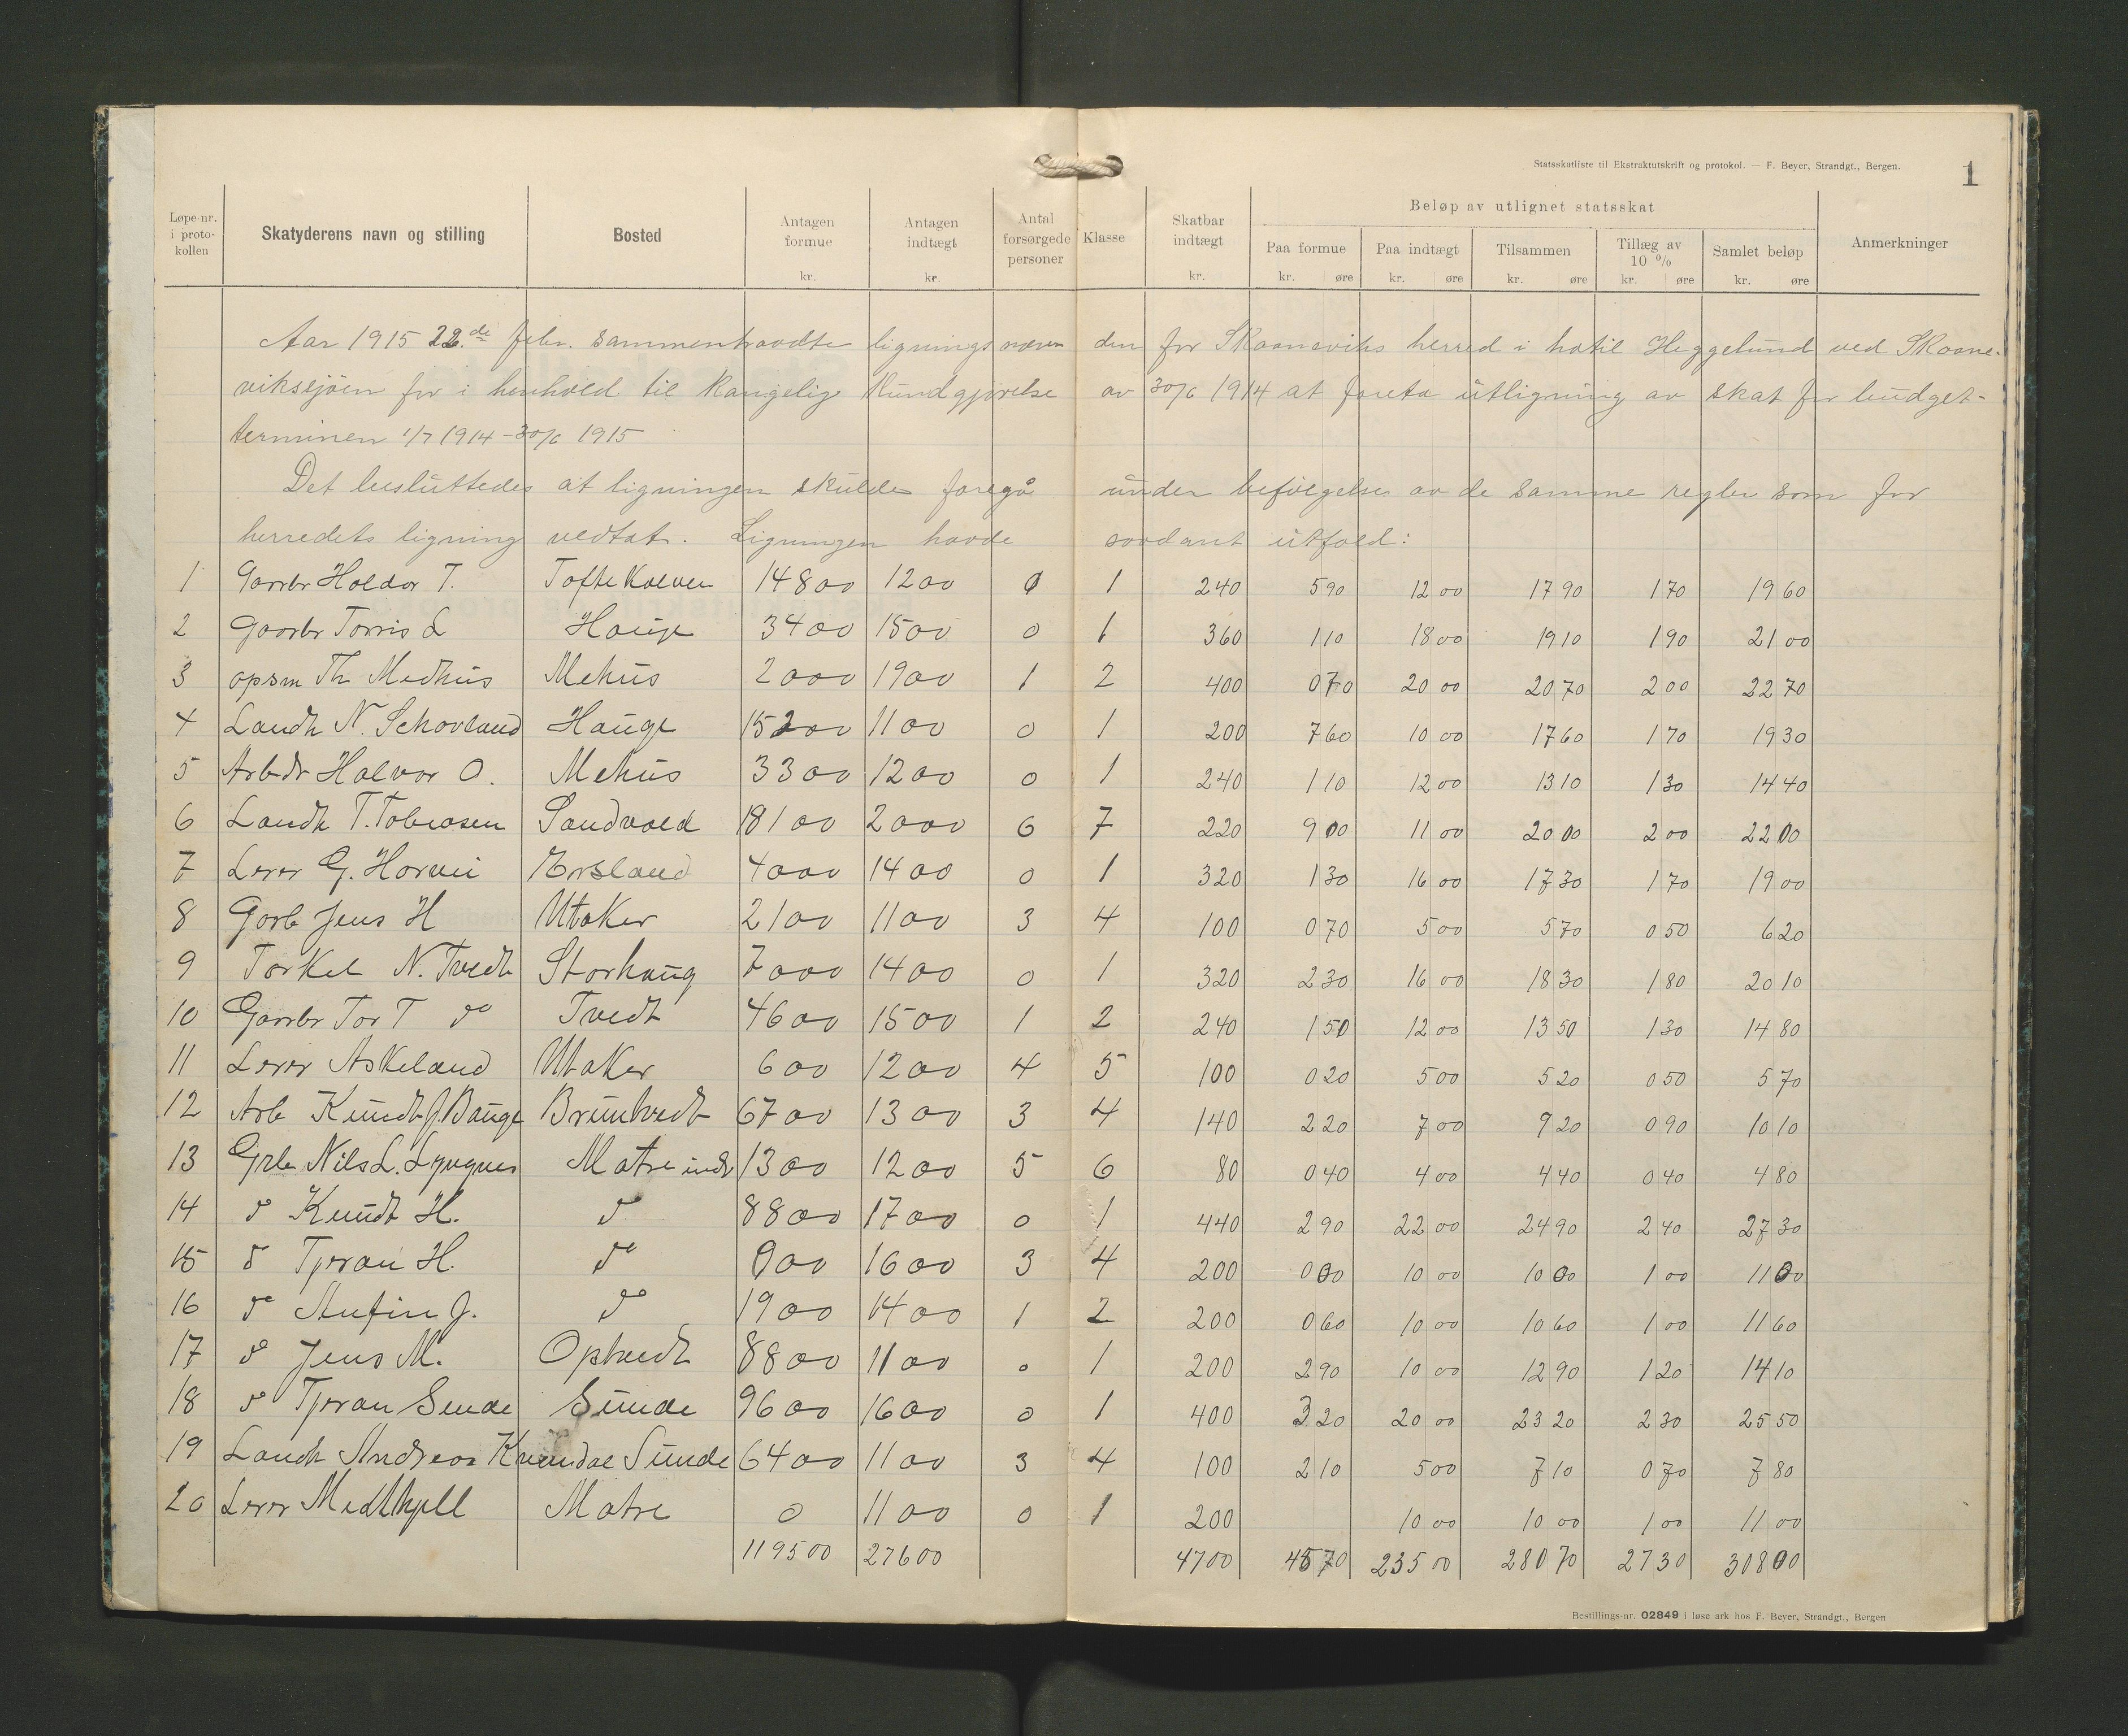 Statsskatliste til Ekstraktutskrift og protokol. — F. Beyer, Strandgt., Bergen.
1
Løpe-nr. i proto-kollen | Skatyderens navn og stilling | Bosted | Antagen formue kr. | Antagen indtægt kr. | Antal forsørgede personer | Klasse | Skatbar indtægt kr. | Beløp av utlignet statsskat | Anmerkninger
Paa formue kr. øre | Paa indtægt kr. øre | Tilsammen kr. øre | Tillæg av 10 % kr. øre | Samlet beløp kr. øre
Aar 1915 22.de febr. sammentraadte ligningsnævn den for Skaaneviks herred i hotil Heggelund ved Skaane-
viksjöen for i henhold til kongelig kundgjörelse av 30/6 1914 at foreta utligning av skat for budget-
terminen 1/7 1914-30/6 1915
Det besluttedes at ligningen skulde foregå under befölgelse av de samme regler som for
herredets ligning vedtat. Ligningen havde saadant utfald:
1 Gaarbr Haldor T. Toftekalven 14800 1200 0 1 240 5 90 12 00 17 90 1 70 19 60
2 Gaarbr Torris L Hauge 3400 1500 0 1 360 1 10 18 00 19 10 1 90 21 00
3 opsm Th Medhus Mehus 2000 1900 1 2 400 0 70 20 00 20 70 2 00 22 70
4 Landh N. Schovland Hauge 15200 1100 0 1 200 7 60 10 00 17 60 1 70 19 30
5 Arbdr Halvor O. Mehus 3300 1200 0 1 240 1 10 12 00 13 10 1 30 14 40
6 Landh T. Tobiasen Sandvold 18100 2000 6 7 220 9 00 11 00 20 00 2 00 22 00
7 Lærer G. Horvei Ersland 4000 1400 0 1 320 1 30 16 00 17 30 1 70 19 00
8 Garb Jens H Utaker 2100 1100 3 4 100 0 70 5 00 5 70 0 50 6 20
9 Torkel N. Tvedt Storhaug 7000 1400 0 1 320 2 30 16 00 18 30 1 80 20 10
10 Gaarbr Tor T do Tvedt 4600 1500 1 2 240 1 50 12 00 13 50 1 30 14 80
11 Lærer Askeland Utaker 600 1200 4 5 100 0 20 5 00 5 20 0 50 5 70
12 Arb Knudt J. Bauge Bruntvedt 6700 1300 3 4 140 2 20 7 00 9 20 0 90 10 10
13 Grb Nils L. Lyngnes Matre indr 1300 1200 5 6 80 0 40 4 00 4 40 0 40 4 80
14 do Knudt H. do 8800 1700 0 1 440 2 90 22 00 24 90 2 40 27 30
15 do Tjeran H. do 000 1600 3 4 200 0 00 10 00 10 00 1 00 11 00
16 do Anfin J. do 1900 1400 1 2 200 0 60 10 00 10 60 1 00 11 60
17 do Jens M. Optvedt 8800 1100 0 1 200 2 90 10 00 12 90 1 20 14 10
18 do Tjeran Sunde Sunde 9600 1600 0 1 400 3 20 20 00 23 20 2 30 25 50
19 Landh Andreas Sunde 6400 1100 3 4 100 2 10 5 00 7 10 0 70 7 80
20 Lærer Matre 0 1100 0 1 200 10 00 10 00 1 00 11 00
119500 27600 4700 45 70 235 00 280 70 27 30 308 00
Bestillings-nr. 02849 i løse ark hos F. Beyer, Strandgt., Bergen